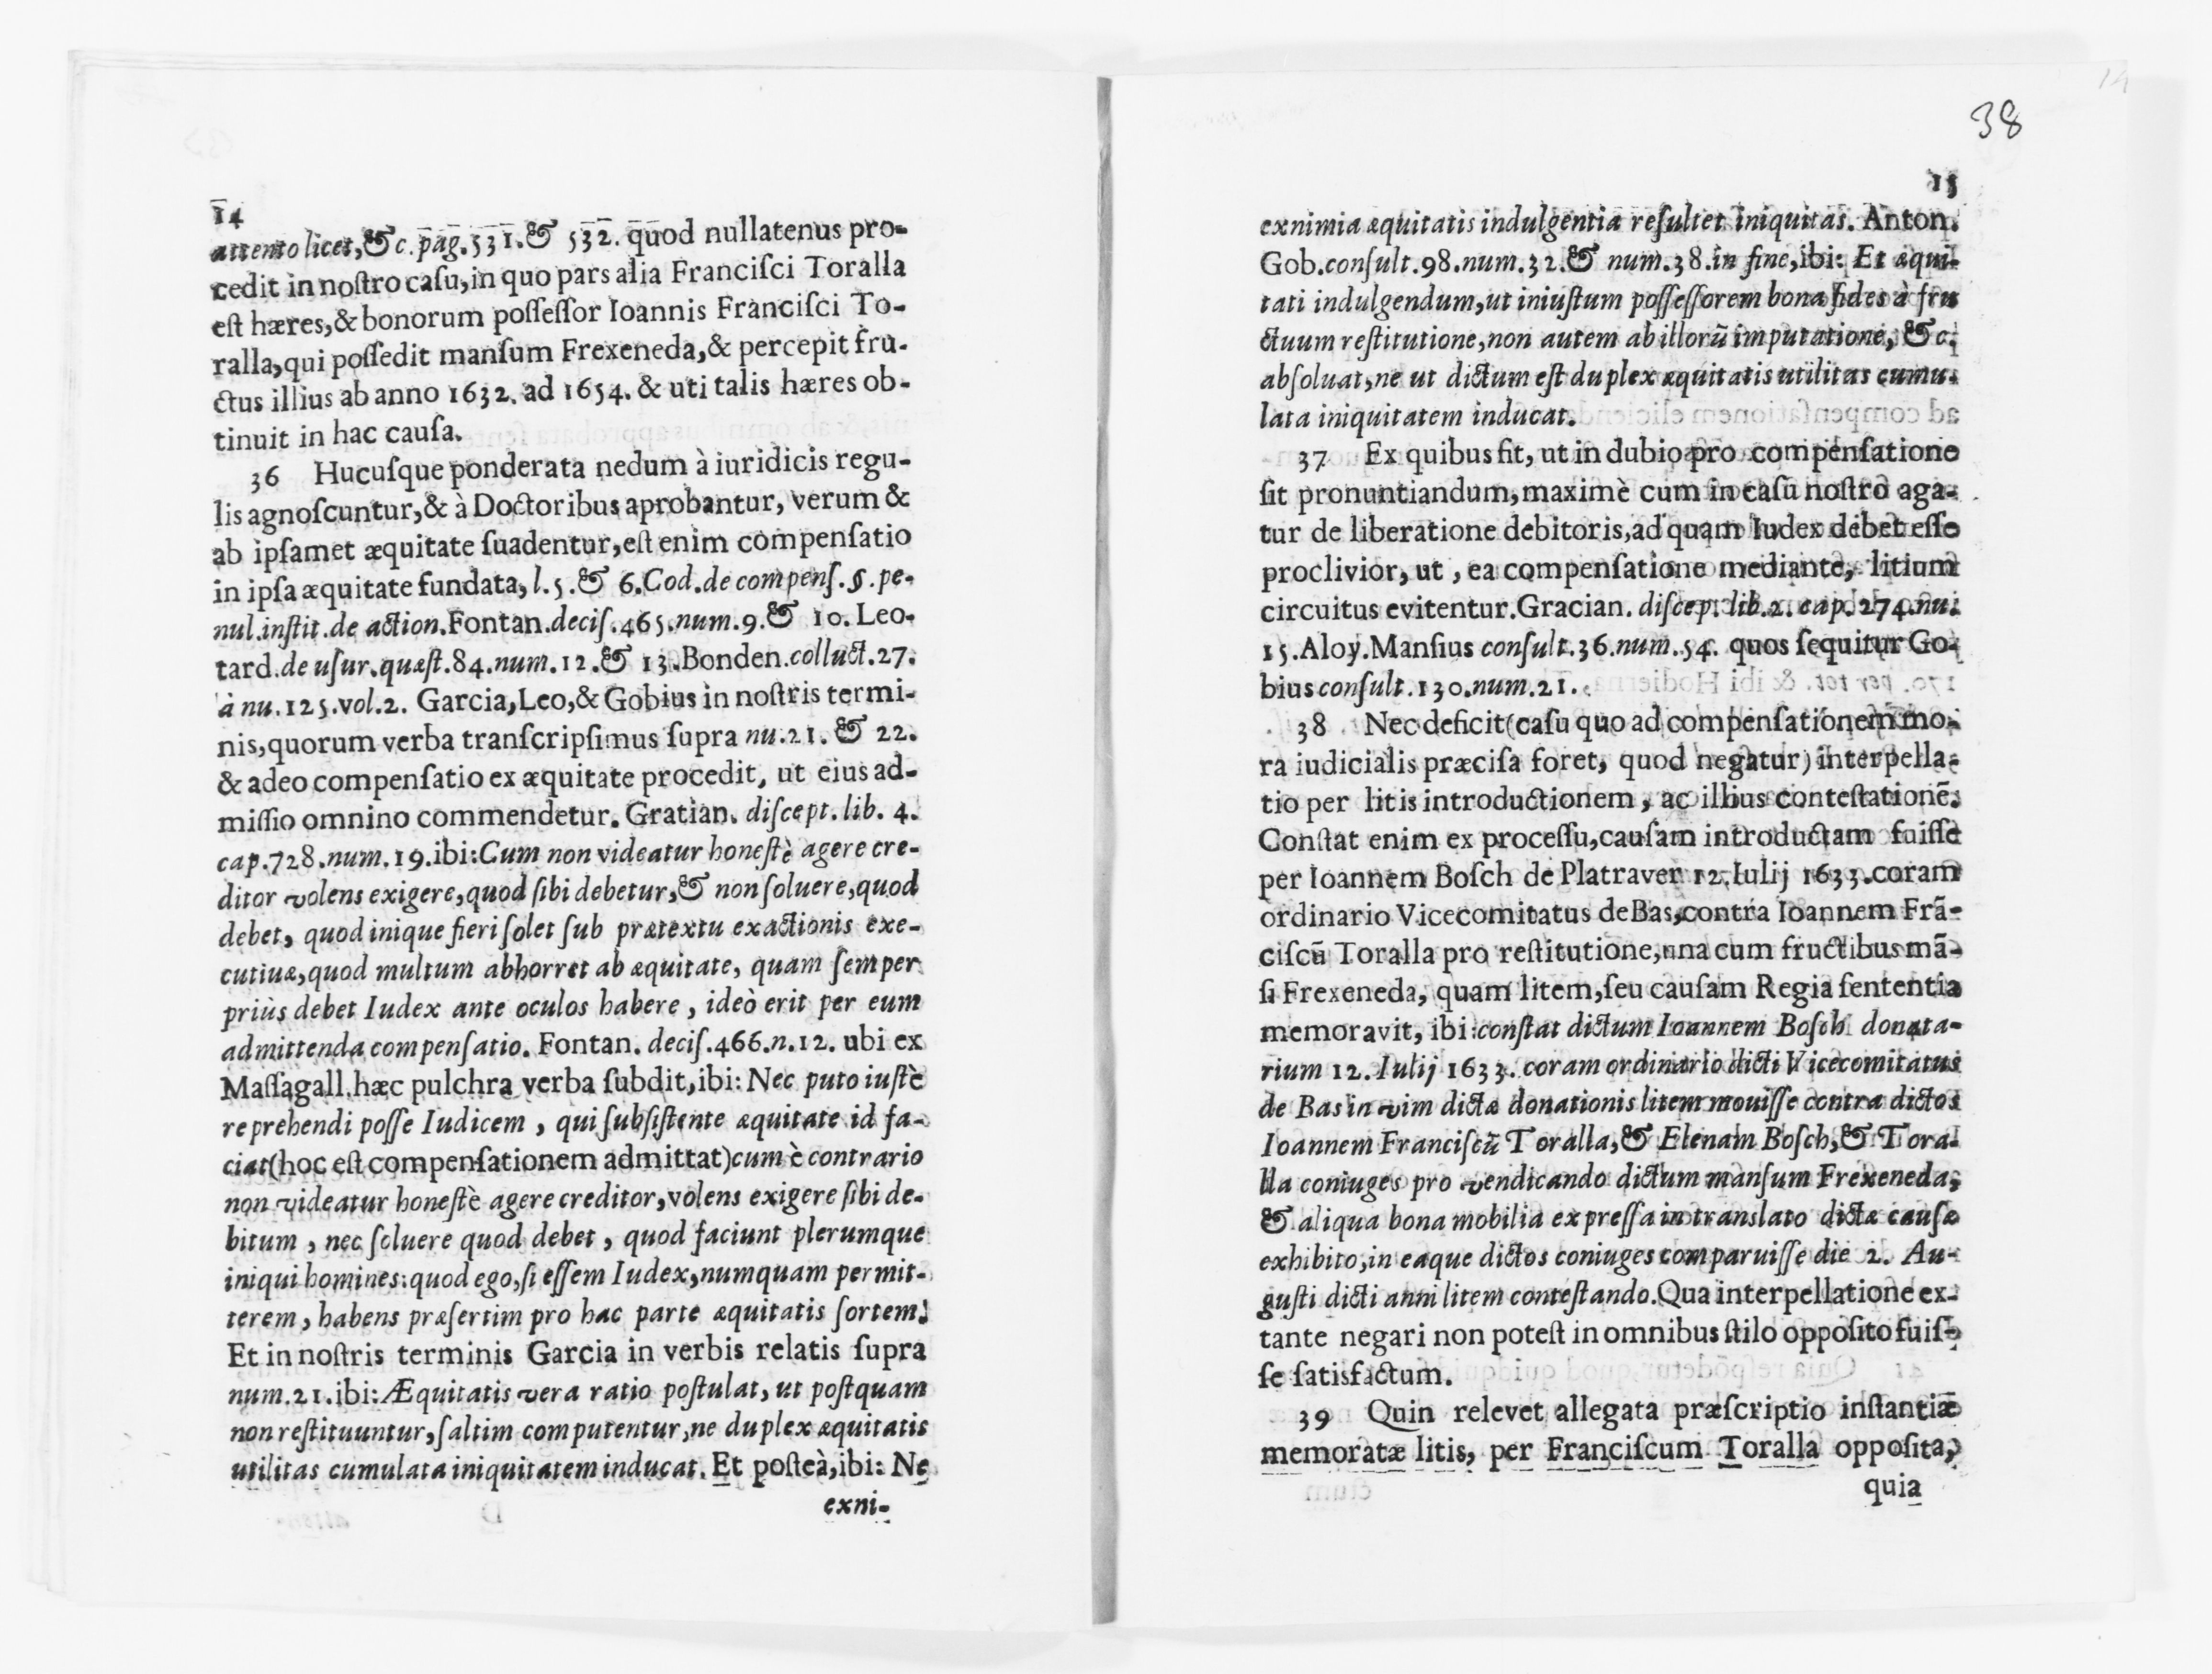 14
attento licet, & c. pag. 531. & 532. quod nullatenus pro-
cedit in nostro casu, in quo pars alia Francisci Toralla
est hæres, & bonorum possessor Ioannis Francisci To-
ralla, qui possedit mansum Frexeneda, & percepit fru-
ctus illius ab anno 1632. ad 1654. & uti talis hæres ob-
tinuit in hac causa.
36 Hucusque ponderata nedum à iuridicis regu-
lis agnoscuntur, & à Doctoribus aprobantur, verum &
ab ipsamet æquitate suadentur, est enim compensatio
in ipsa æquitate fundata, l. 5. & 6. Cod. de compens. §. pe-
nul. instit. de action. Fontan. decis. 465. num. 9. & 10. Leo-
tard. de usur. quæst. 84. num. 12. & 13. Bonden. colluct. 27.
à nu. 125. vol. 2. Garcia, Leo, & Gobius in nostris termi-
nis, quorum verba transcripsimus supra nu. 21. & 22.
& adeo compensatio ex æquitate procedit, ut eius ad-
missio omnino commendetur. Gratian. discept. lib. 4.
cap. 728. num. 19. ibi: Cum non videatur honestè agere cre-
ditor volens exigere, quod sibi debetur, & non soluere, quod
debet, quod inique fieri solet sub prætextu exactionis exe-
cutiuæ, quod multum abhorret ab æquitate, quam semper
priùs debet Iudex ante oculos habere, ideò erit per eum
admittenda compensatio. Fontan. decis. 466. n. 12. ubi ex
Massagall. hæc pulchra verba subdit, ibi: Nec puto iustè
reprehendi posse Iudicem, qui subsistente æquitate id fa-
ciat (hoc est compensationem admittat) cum è contrario
non videatur honestè agere creditor, volens exigere sibi de-
bitum, nec soluere quod debet, quod faciunt plerumque
iniqui homines: quod ego, si essem Iudex, numquam permit-
terem, habens præsertim pro hac parte æquitatis sortem!
Et in nostris terminis Garcia in verbis relatis supra
num. 21. ibi: Æquitatis vera ratio postulat, ut postquam
non restituuntur, saltim computentur, ne duplex æquitatis
utilitas cumulata iniquitatem inducat. Et posteà, ibi: Ne
exni-
38
15
exnimia æquitatis indulgentia resultet iniquitas. Anton.
Gob. consult. 98. num. 32. & num. 38. in fine, ibi: Et æqui-
tati indulgendum, ut iniustum possessorem bona fides à fru
ctuum restitutione, non autem ab illorũ imputatione, & c.
absoluat, ne ut dictum est duplex æquitatis utilitas cumu-
lata iniquitatem inducat.
37 Ex quibus fit, ut in dubio pro compensatione
sit pronuntiandum, maximè cum in casu nostro aga-
tur de liberatione debitoris, ad quam Iudex debet esse
proclivior, ut, ea compensatione mediante, litium
circuitus evitentur. Gracian. discep. lib. 2. cap. 274. nu.
15. Aloy. Mansius consult. 36. num. 54. quos sequitur Go-
bius consult. 130. num. 21.
38 Nec deficit (casu quo ad compensationem mo-
ra iudicialis præcisa foret, quod negatur) interpella-
tio per litis introductionem, ac illius contestationẽ.
Constat enim ex processu, causam introductam fuisse
per Ioannem Bosch de Platraver 12. Iulij 1633. coram
ordinario Vicecomitatus de Bas, contra Ioannem Frã-
ciscũ Toralla pro restitutione, una cum fructibus mã-
si Frexeneda, quam litem, seu causam Regia sententia
memoravit, ibi: constat dictum Ioannem Bosch donata-
rium 12. Iulij 1633. coram ordinario dicti Vicecomitatus
de Bas in vim dictæ donationis litem mouisse contra dictos
Ioannem Franciscũ Toralla, & Elenam Bosch, & Tora-
lla coniuges pro vendicando dictum mansum Frexeneda,
& aliqua bona mobilia expressa in translato dictæ causæ
exhibito, in eaque dictos coniuges comparuisse die 2. Au-
gusti dicti anni litem contestando. Qua interpellatione ex-
tante negari non potest in omnibus stilo opposito fuis-
se satisfactum.
39 Quin relevet allegata præscriptio instantiæ
memoratæ litis, per Franciscum Toralla opposita,
quia